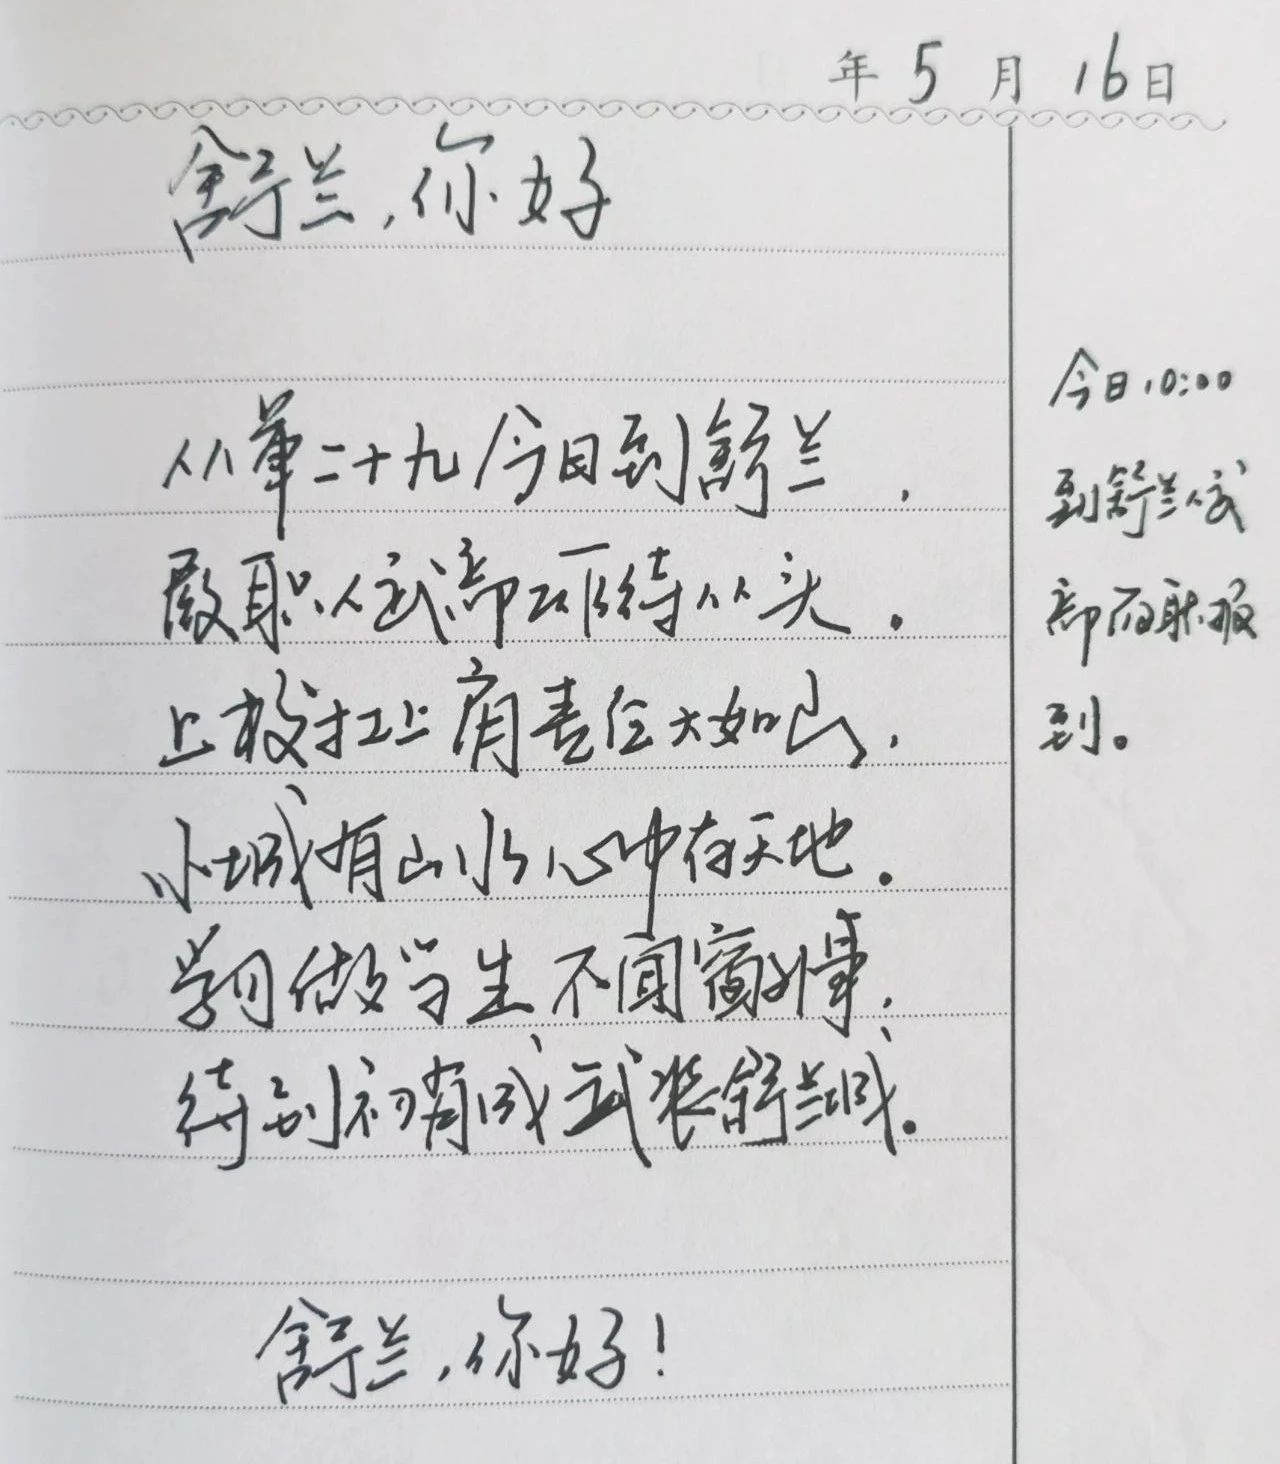 年 5 月 16日
舒兰,你好
从军二十九今日到舒兰,
履职人武部万事待从头。
上校扛上肩责任大如山,
小城有山水心中存天地。
学习做学生不闻窗外事,
待到初有成武装舒兰城。
舒兰,你好!
今日10:00
到舒兰人武
部履职报
到。